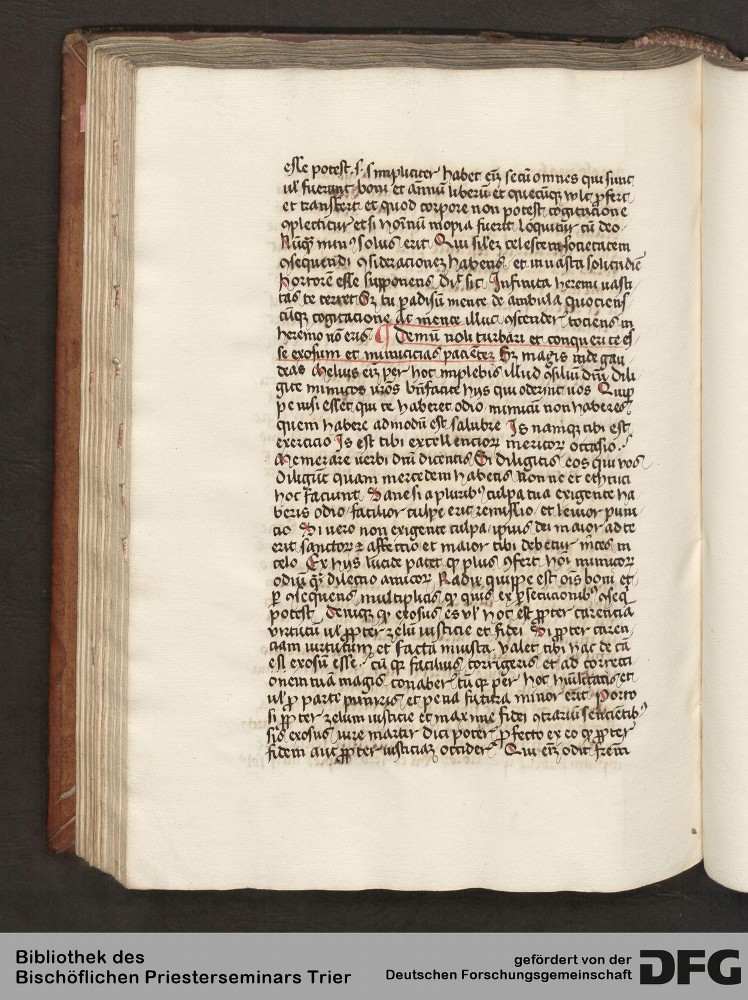 esse potest .s. simpliciter habet eū secū omnes qui sunt
ul' fuerunt boni et annū liberū et quecūq; vult p̄fert
et transfert et quod corpore non potest cogitacione
ꝯplectitur et si hoīnū inopia fuerit loquitur cū deo
Nūq̄ minꝰ solus erit Qui sil'ez celestem societatem
ꝯsequendi ꝯsideracionez habens et in vasta solitudīe
hortorem esse supponens dr̄ sic Infinita heremi vasti
tas te terret Sꝫ tu padisū mente de ambula quociens
cūq; cogitacione ac mente illuc ꝯscender tociens in
heremo nō eris ¶ Demū noli turbari et conqueri te es
se exosum et inimicicias pacientez Sꝫ magis inde gau
deas Melius eiz per hoc implebis illud ꝯsiliū dn̄i Dili
gite inimicos vr̄os b̄nfacite hys qui oderint uos Quip
pe nisi esset qui te haberet odio inimicū non haberes
quem habere admodū est salubre Is namq; tibi est
exercicio Is est tibi excellencioꝝ meritoꝝ occasio
Memorare verbi dn̄i dicentis Si diligitis eos qui vos
diligūt quam mercedem habetis Non ne et ethnici
hoc faciunt Sane si a pluribꝰ culpa tua exigente ha
beris odio facilior culpe erit remissio et leuior puni
cio Si vero non exigente culpa ip̄ius dei maior ad te
erit sanctoꝝqꝫ affectio et maior tibi debetur m̄ces in
celo Ex hys lucide patet qꝫ plus ꝯfert hoī inimicoꝝ
odiū qꝫ dilectio amicoꝝ Radix quippe est oīs boni et
p̄ ꝯsequens multiplicis qꝫ quis ex p̄secucionibꝰ ꝯseq̄
potest Deniq; qꝫ exosus es vl' hoc est ꝓpter carencia
virtutū vl' ꝓpter zelū iusticie et fidei Si ꝓpter caren
ciam virtutum et facta iniusta valet tibi hac de cā
esl exosū esse cū qꝫ facilius corrigeris et ad correcti
onem tuā magis conaber tū qꝫ per hoc hūilitatis et
vl' p̄ parte puniris et pena futura minor erit Porro
si ꝓpter zelum iusticie et maxime fidei ꝯtrariū sencientibꝰ
sis exosus iure martir dici poter ꝓfecto ex eo qꝫ ꝓpter
fidem aut ꝓpter iusticiaz occider Qui eīz odit fr̄em
Bibliothek des
Bischöflichen Priesterseminars Trier
gefördert von der
Deutschen Forschungsgemeinschaft
DFG